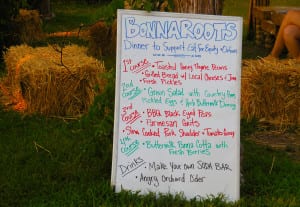 BONNAROOTS
Dinner to Support Eat for Equity
1st Course
• Toasted Penny Thyme Pecans
• Grilled Bread w/ Local Cheeses + Jam
• Fresh Pickles
2nd Course
• Green Salad with Country Ham,
Pickled Eggs + Herb Buttermilk Dressing
3rd Course
• BBQ Black Eyed Peas
• Parmesan Grits
• Slow Cooked Pork Shoulder
4th Course
• Buttermilk Panna Cotta with
Fresh Berries
Drinks
• Make Your own SODA BAR
• Angry Orchard Cider